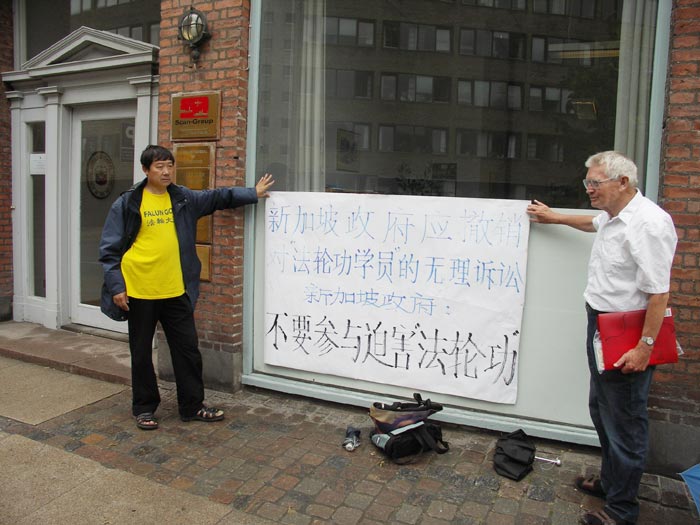 Scan-Group
FALUN GO
法輪大
新加坡政府应撤销
对"法轮功学员"的无理诉讼
新加坡政府:
不要参与迫害"法轮功"